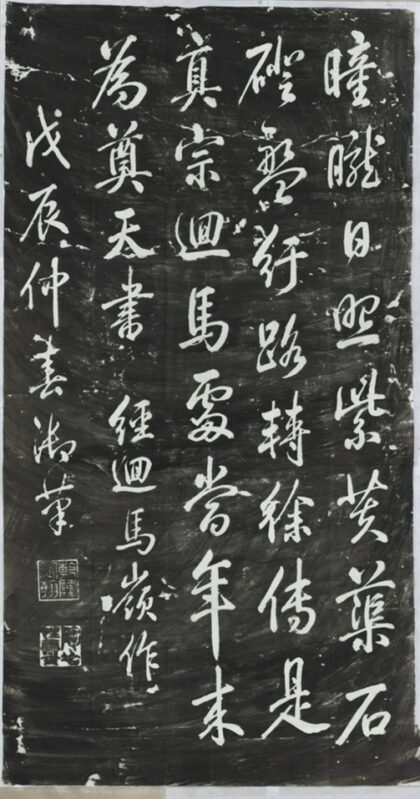 曈曨日照紫芙蕖石
磴盤紆路轉徐傳是
真宗迴馬處當年来
為奠天書 經迴馬嶺作
戊辰仲春御筆
乾隆宸翰